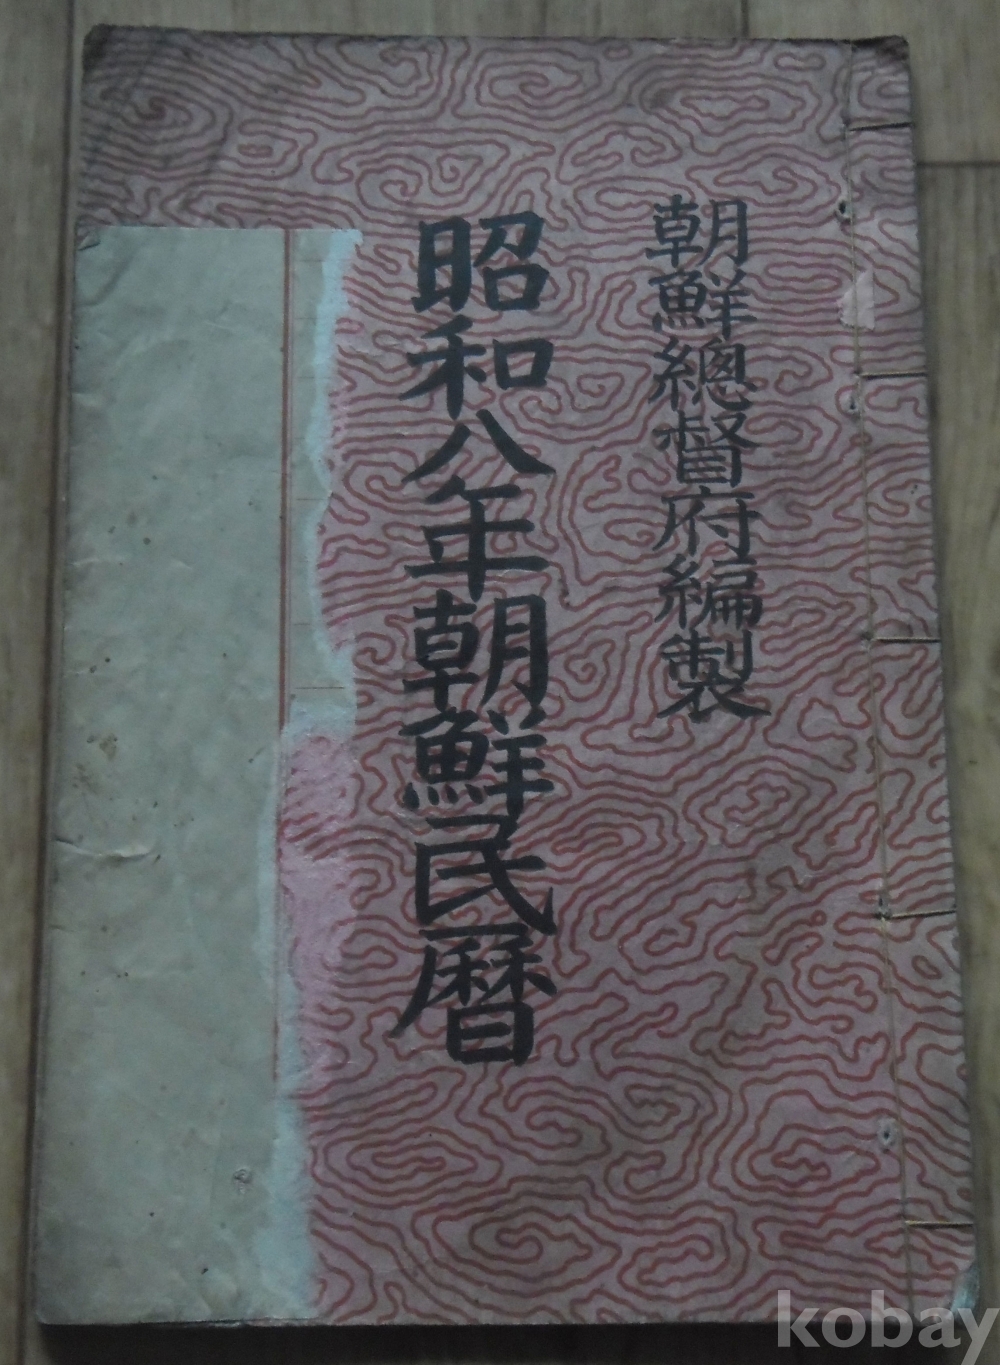 朝鮮總督府編製
昭和八年朝鮮民曆
kobay